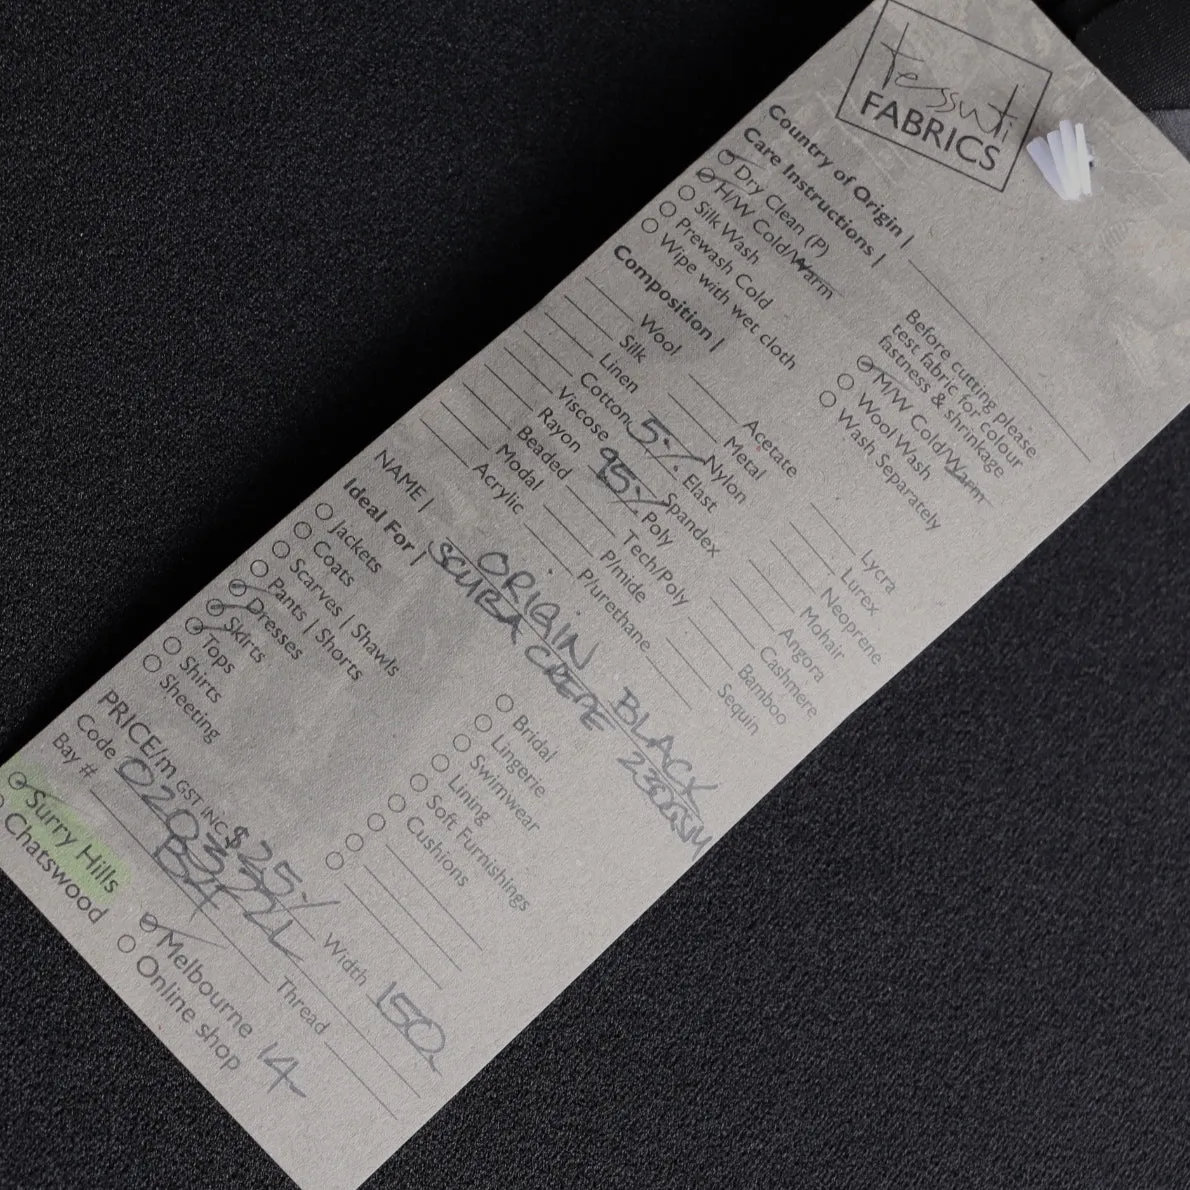 tessuti
FABRICS
Country of Origin |
Care Instructions |
Dry Clean (P)
H/W Cold/Warm
Silk Wash
Prewash Cold
Wipe with wet cloth
Before cutting please
test fabric for colour
fastness & shrinkage
M/W Cold/Warm
Wool Wash
Wash Separately
Composition |
Wool
Silk
Linen
Cotton
Viscose
Rayon
Beaded
Modal
Acrylic
Acetate
Metal
Nylon
5% Elast
Spandex
95% Poly
Tech/Poly
P/mide
P/urethane
Lycra
Lurex
Neoprene
Mohair
Angora
Cashmere
Bamboo
Sequin
NAME | ORIGIN BLACK
SCUBA CREPE 230GSM
Ideal For |
Jackets
Coats
Scarves | Shawls
Pants | Shorts
Dresses
Skirts
Tops
Shirts
Sheeting
Bridal
Lingerie
Swimwear
Lining
Soft Furnishings
Cushions
PRICE/m GST INC $25
Width 150
Code
Bay #
Thread
Surry Hills
Chatswood
Melbourne 14
Online shop